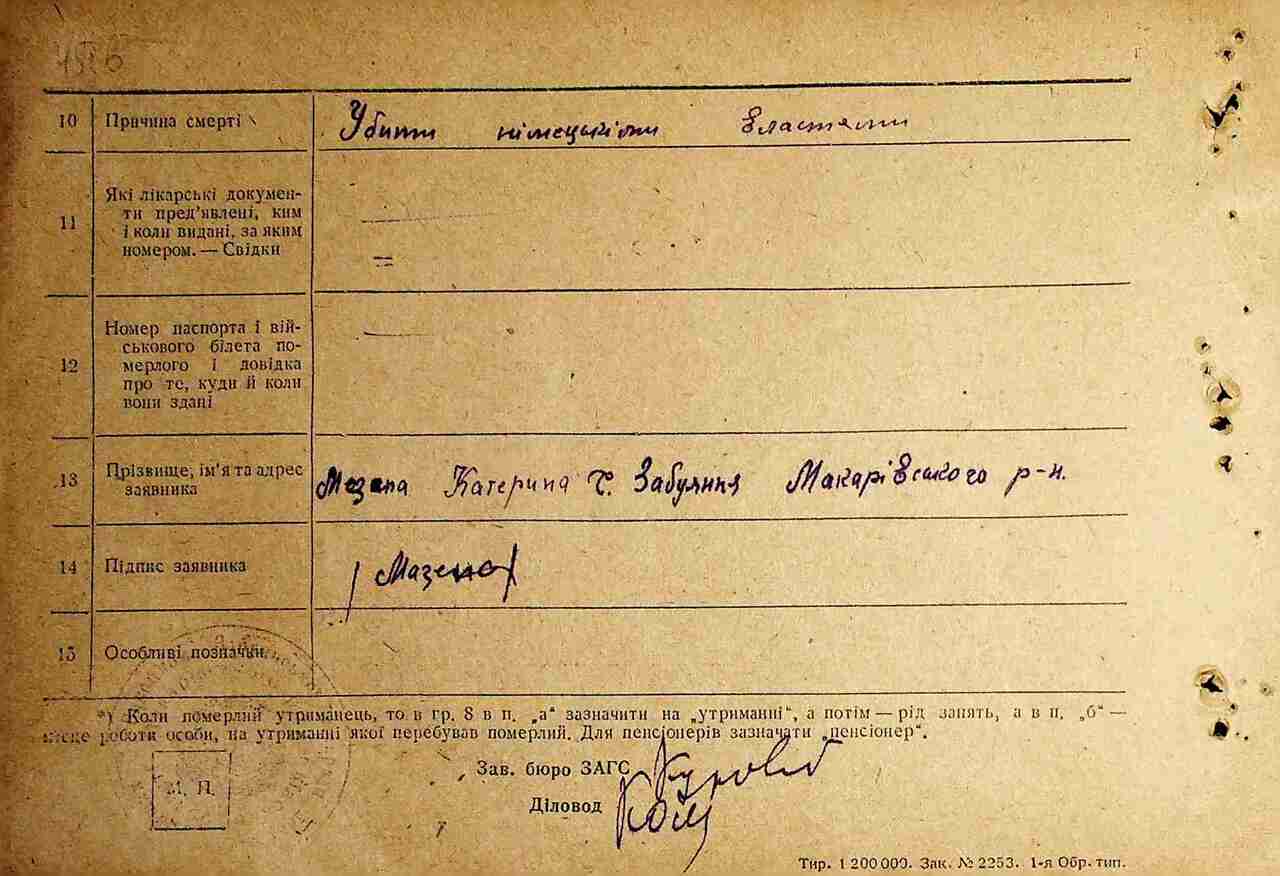 10 Причина смерті Убити німецькіми властями
11 Які лікарські докумен-
ти пред'явлені, ким
і коли видані, за яким
номером. — Свідки
12 Номер паспорта і вій-
ськового білета по-
мерлого і довідка
про те, куди й коли
вони здані
13 Прізвище, ім'я та адрес
заявника
Мазепа Катерина с. Забуяння Макарівського р-н.
14 Підпис заявника Мазепа
15 Особливі позначки.
*) Коли померлий утриманець, то в гр. 8 в п. „а“ зазначити на „утриманні“, а потім — рід занять, а в п. „б“ —
місце роботи особи, на утриманні якої перебував померлий. Для пенсіонерів зазначати „пенсіонер“.
Зав. бюро ЗАГС
М. П.
Діловод
Тир. 1 200 000. Зак. № 2253. 1-я Обр. тип.